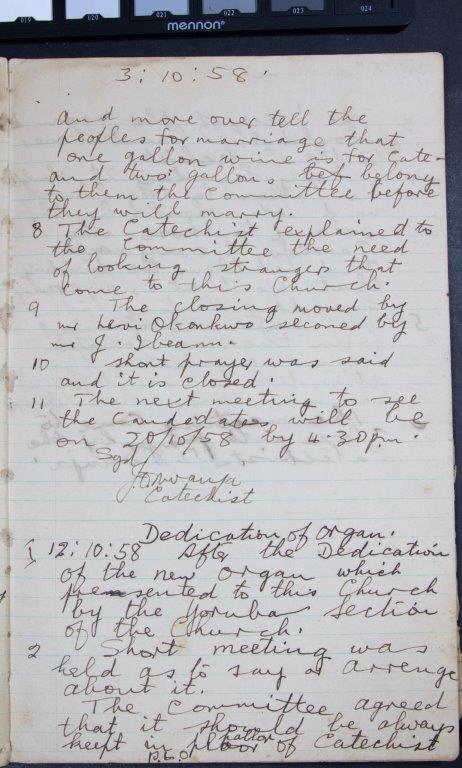 019 020 021 022 023 024
mennon®
3:10:58.
and more over tell the
peoples for marriage that
one gallon wine is for Cate-
and two gallons bef belong
to them the Committee before
they will marry.
8 The Catechist explained to
the Committee the need
of looking strangers that
come to this Church.
9 The closing moved by
mr Levi Okonkwo seconed by
mr J. Ibeanu.
10 short prayer was said
and it is closed.
11 The next meeting to see
the Candedates will be
on 20/10/58 by 4.30pm.
Sgd/
Catechist
Dedication of organ.
1 12:10:58 After the Dedication
of the new organ which
presented to this Church
by the Yoruba section
of the Church.
2 Short meeting was
held as to say or arrenge
about it.
The Committee agreed
that it should be always
keept in of Catechist